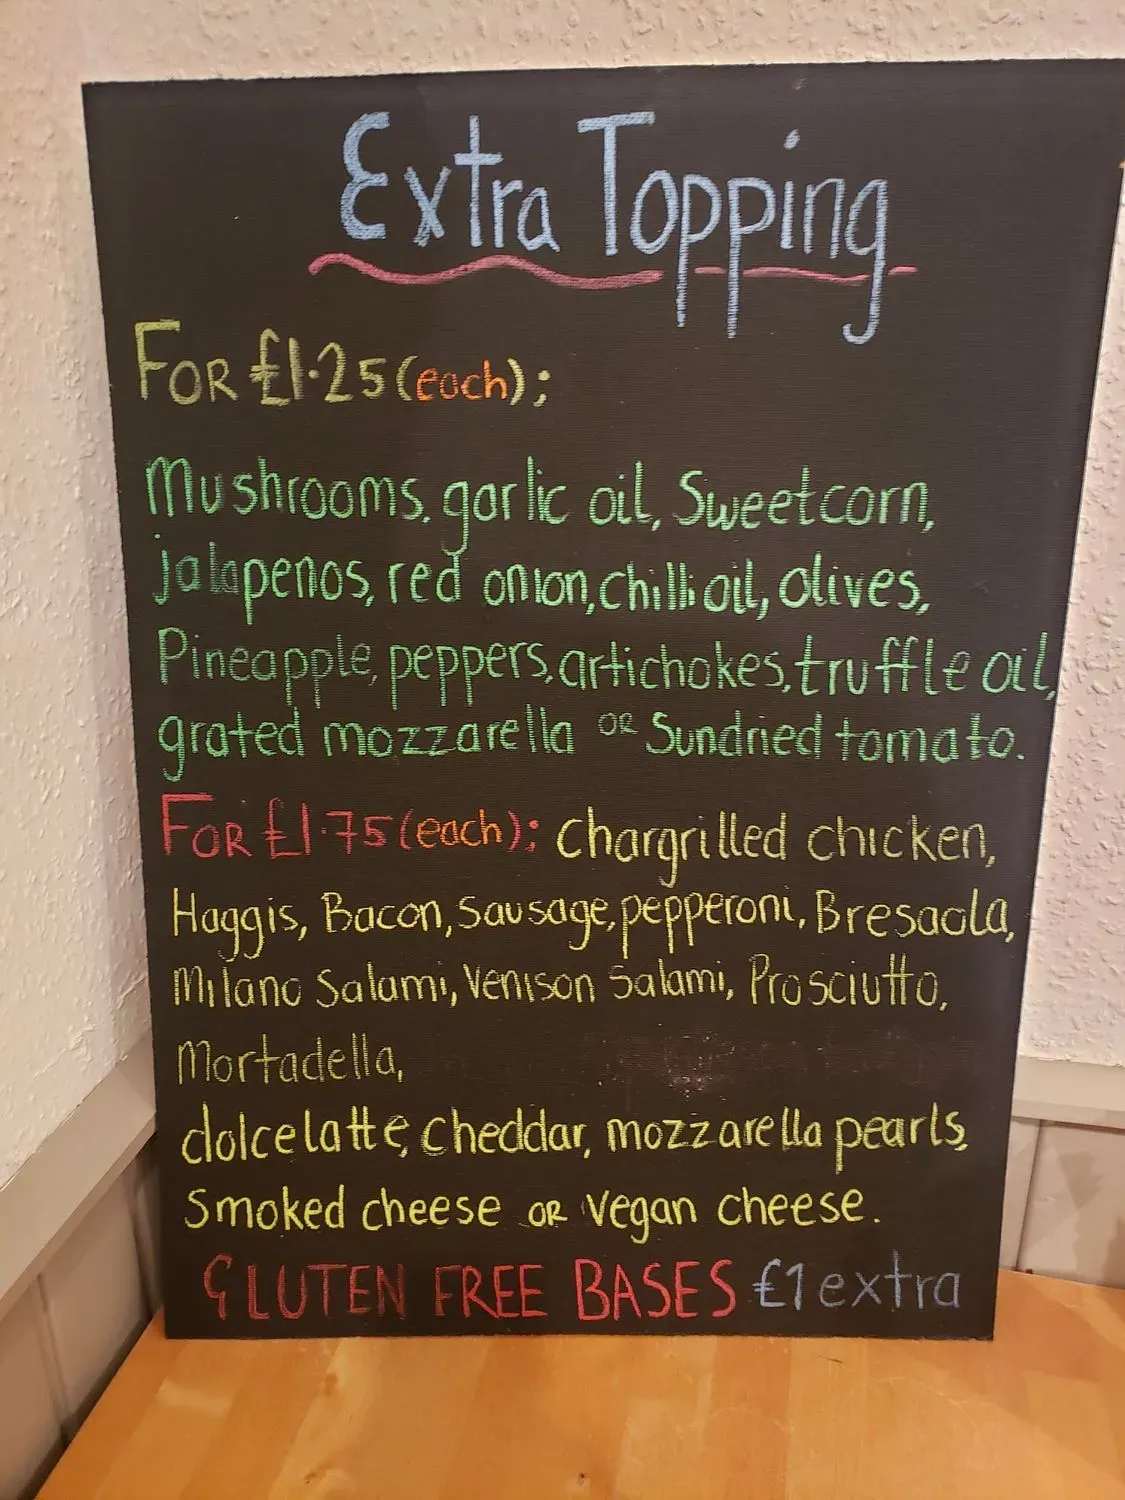 Extra Topping
FOR £1.25 (each);
Mushrooms, garlic oil, Sweetcorn,
jalapenos, red onion, chilli oil, olives,
Pineapple, peppers, artichokes, truffle oil,
grated mozzarella OR Sundried tomato.
FOR £1.75 (each); Chargrilled chicken,
Haggis, Bacon, Sausage, pepperoni, Bresaola,
Milano Salami, Venison Salami, Prosciutto,
Mortadella,
dolcelatte, Cheddar, mozzarella pearls,
Smoked cheese OR Vegan cheese.
GLUTEN FREE BASES £1 extra